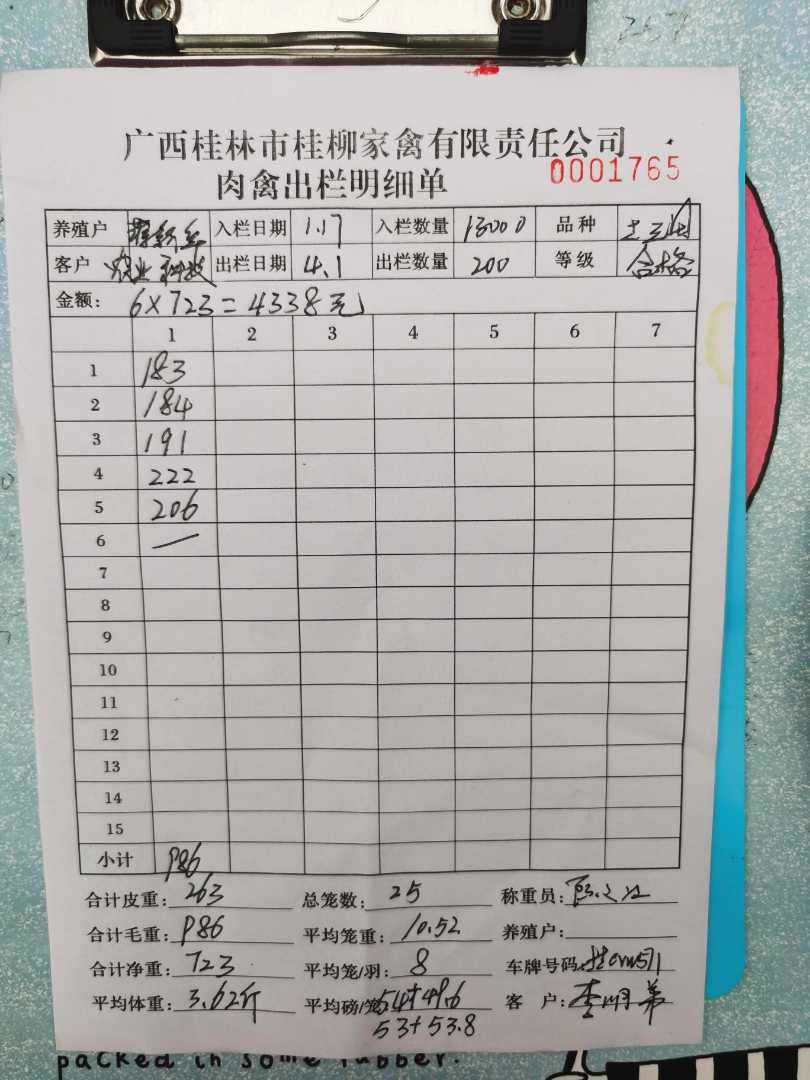 广西桂林市桂柳家禽有限责任公司
0001765
肉禽出栏明细单
养殖户 入栏日期 1.17 入栏数量 13000 品种
客户 农业科技 出栏日期 4.1 出栏数量 200 等级 合格
金额: 6×723=4338元
1 2 3 4 5 6 7
1 183
2 184
3 191
4 222
5 206
6 —
7
8
9
10
11
12
13
14
15
小计 986
合计皮重: 263 总笼数: 25 称重员:
合计毛重: 986 平均笼重: 10.52 养殖户:
合计净重: 723 平均笼/羽: 8 车牌号码:
平均体重: 3.62斤 平均磅/笼: 54+49.6 客 户: 李
53+53.8
packed in some rubber.